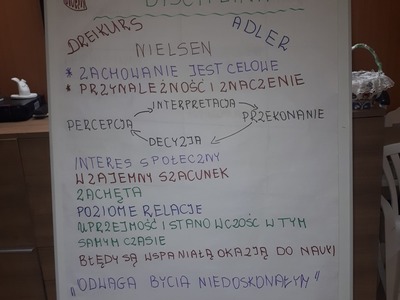 DYSCYPLINA
DREIKURS
ADLER
NIELSEN
* ZACHOWANIE JEST CELOWE
* PRZYNALEŻNOŚĆ I ZNACZENIE
INTERPRETACJA
PERCEPCJA
PRZEKONANIE
DECYZJA
INTERES SPOŁECZNY
WZAJEMNY SZACUNEK
ZACHĘTA
POZIOME RELACJE
UPRZEJMOŚĆ I STANOWCZOŚĆ W TYM
SAMYM CZASIE
BŁĘDY SĄ WSPANIAŁĄ OKAZJĄ DO NAUKI
"ODWAGA BYCIA NIEDOSKONAŁYM"